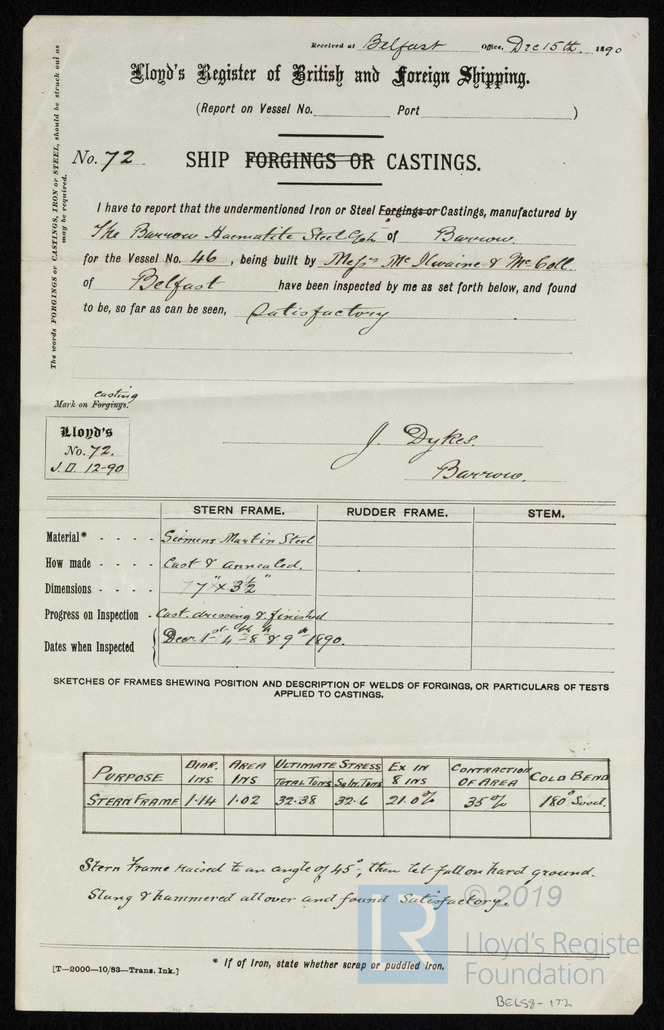 Received at Belfast Office, Dec 15th 1890
Lloyd's Register of British and Foreign Shipping.
(Report on Vessel No. Port )
No. 72
SHIP FORGINGS OR CASTINGS.
The words FORGINGS or CASTINGS, IRON or STEEL, should be struck out as
may be required.
I have to report that the undermentioned Iron or Steel Forgings or Castings, manufactured by
The Barrow Haematite Steel of Barrow.
for the Vessel No. 46, being built by Messrs McIlwaine & McColl
of Belfast have been inspected by me as set forth below, and found
to be, so far as can be seen, Satisfactory
casting
Mark on Forgings.
Lloyd's
No. 72.
J.D. 12-90
J. Dykes.
Barrow.
STERN FRAME. RUDDER FRAME. STEM.
Material* - - - - Siemens Martin Steel
How made - - - - Cast & annealed.
Dimensions - - - - 7" x 3½"
Progress on Inspection - Cast. dressing & finished
Dates when Inspected { Decr 1st 4th 8th & 9th 1890.
SKETCHES OF FRAMES SHEWING POSITION AND DESCRIPTION OF WELDS OF FORGINGS, OR PARTICULARS OF TESTS
APPLIED TO CASTINGS.
PURPOSE DIAR. INS. AREA INS ULTIMATE STRESS TOTAL TONS SqIn. TONS EX IN 8 INS CONTRACTION OF AREA COLD BEND
STERN FRAME 1.14 1.02 32.38 32.6 21.0% 35% 180° Good.
Stern Frame raised to an angle of 45°, then let fall on hard ground.
Slung & hammered all over and found Satisfactory.
© 2019
LR
Lloyd's Register
Foundation
* If of Iron, state whether scrap or puddled Iron.
[T—2000—10/83—Trans. Ink.]
BEL58-172